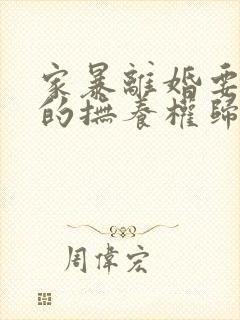 家暴離婚要
的撫養權歸
周偉宏